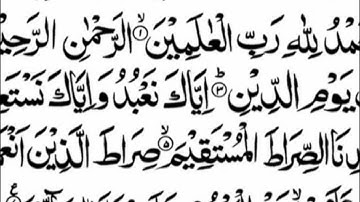 مْدُ لِلّٰهِ رَبِّ الْعٰلَمِيْنَ ۙ﴿۱﴾ الرَّحْمٰنِ الرَّحِيْ
يَوْمِ الدِّيْنِ ؕ﴿۳﴾ اِيَّاكَ نَعْبُدُ وَ اِيَّاكَ نَسْتَعِ
دِنَا الصِّرَاطَ الْمُسْتَقِيْمَ ۙ﴿۵﴾ صِرَاطَ الَّذِيْنَ اَنْعَمْ